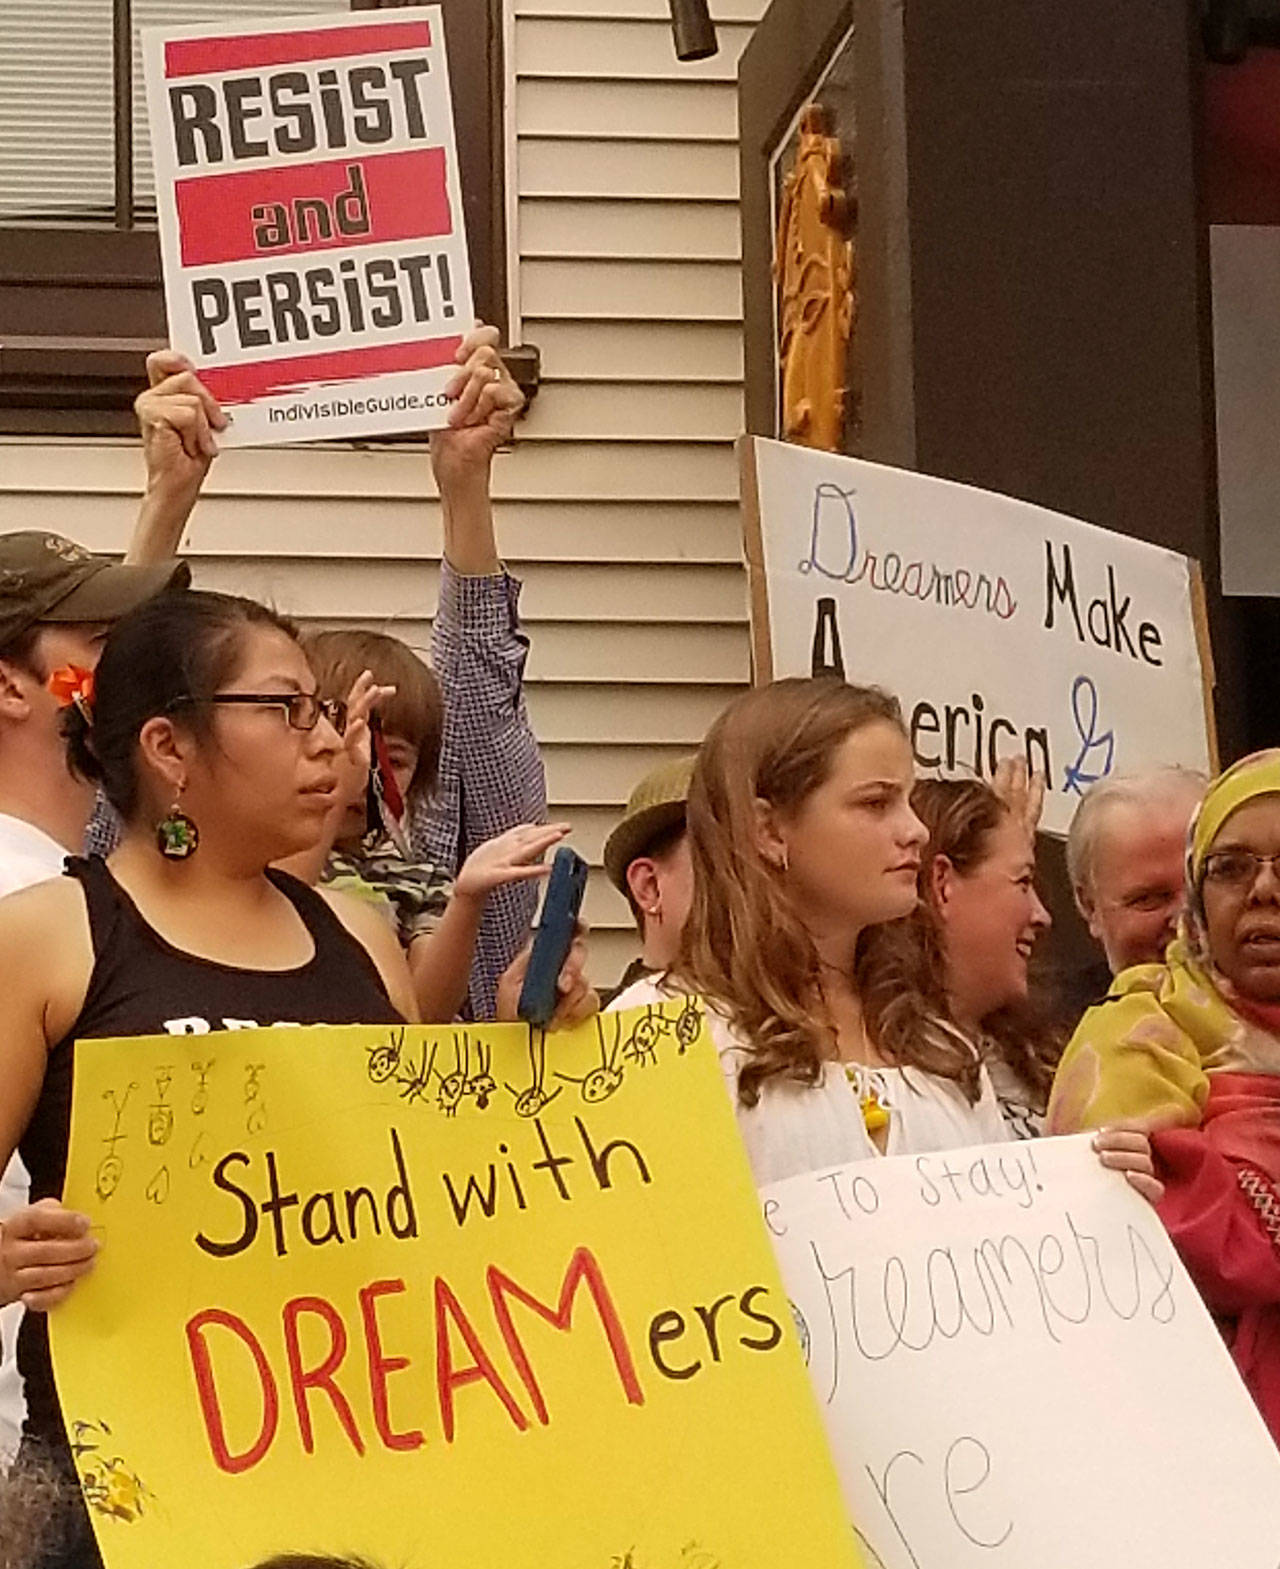 RESIST
and
PERSIST!
IndivisibleGuide.co
Dreamers Make
America
Stand with
DREAMers
e To Stay!
Dreamers
re